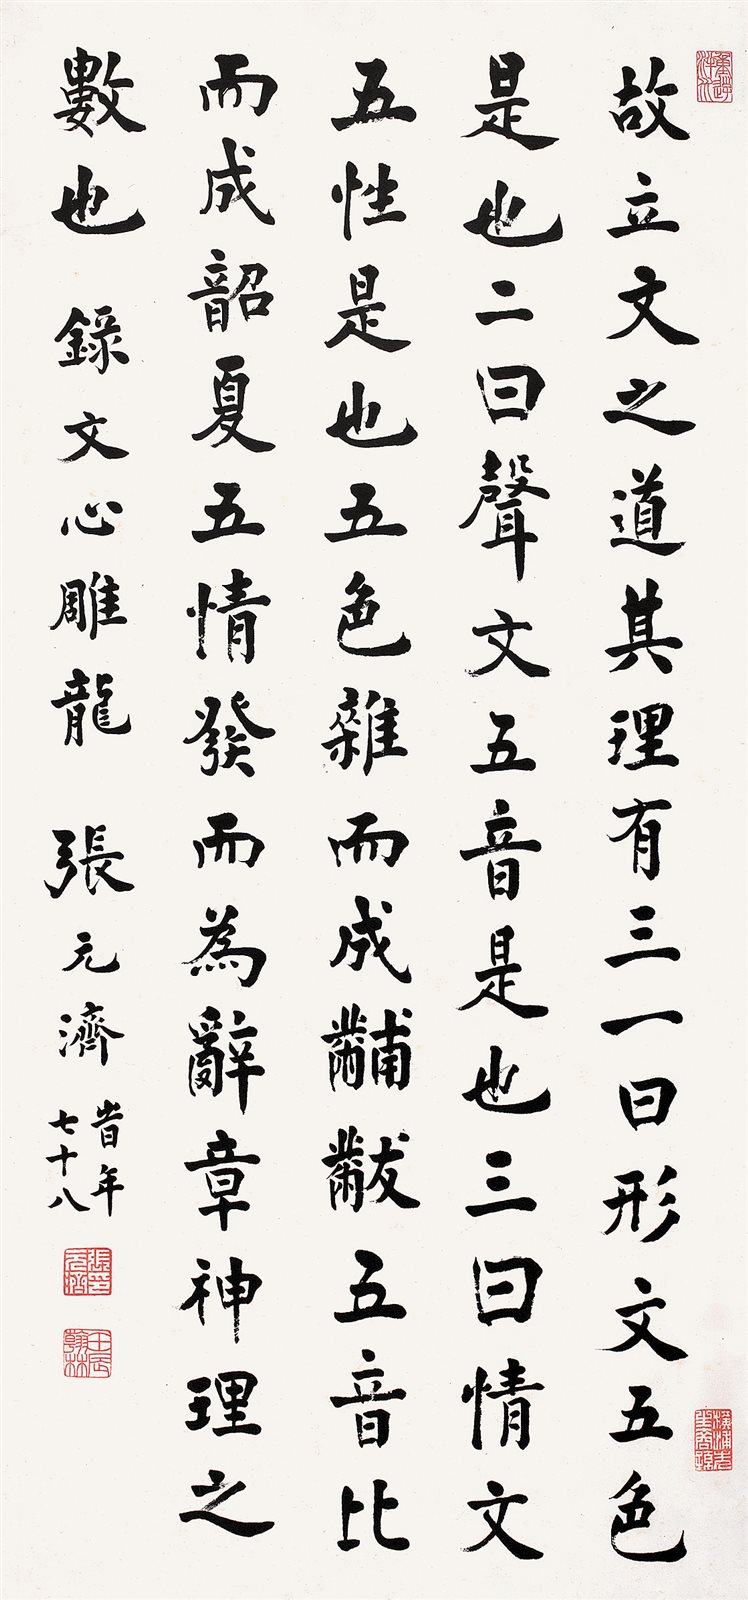 故立文之道其理有三一曰形文五色
是也二曰聲文五音是也三曰情文
五性是也五色雜而成黼黻五音比
而成韶夏五情發而為辭章神理之
數也 錄文心雕龍 張元濟 時年
七十八
張元濟印
壬辰翰林